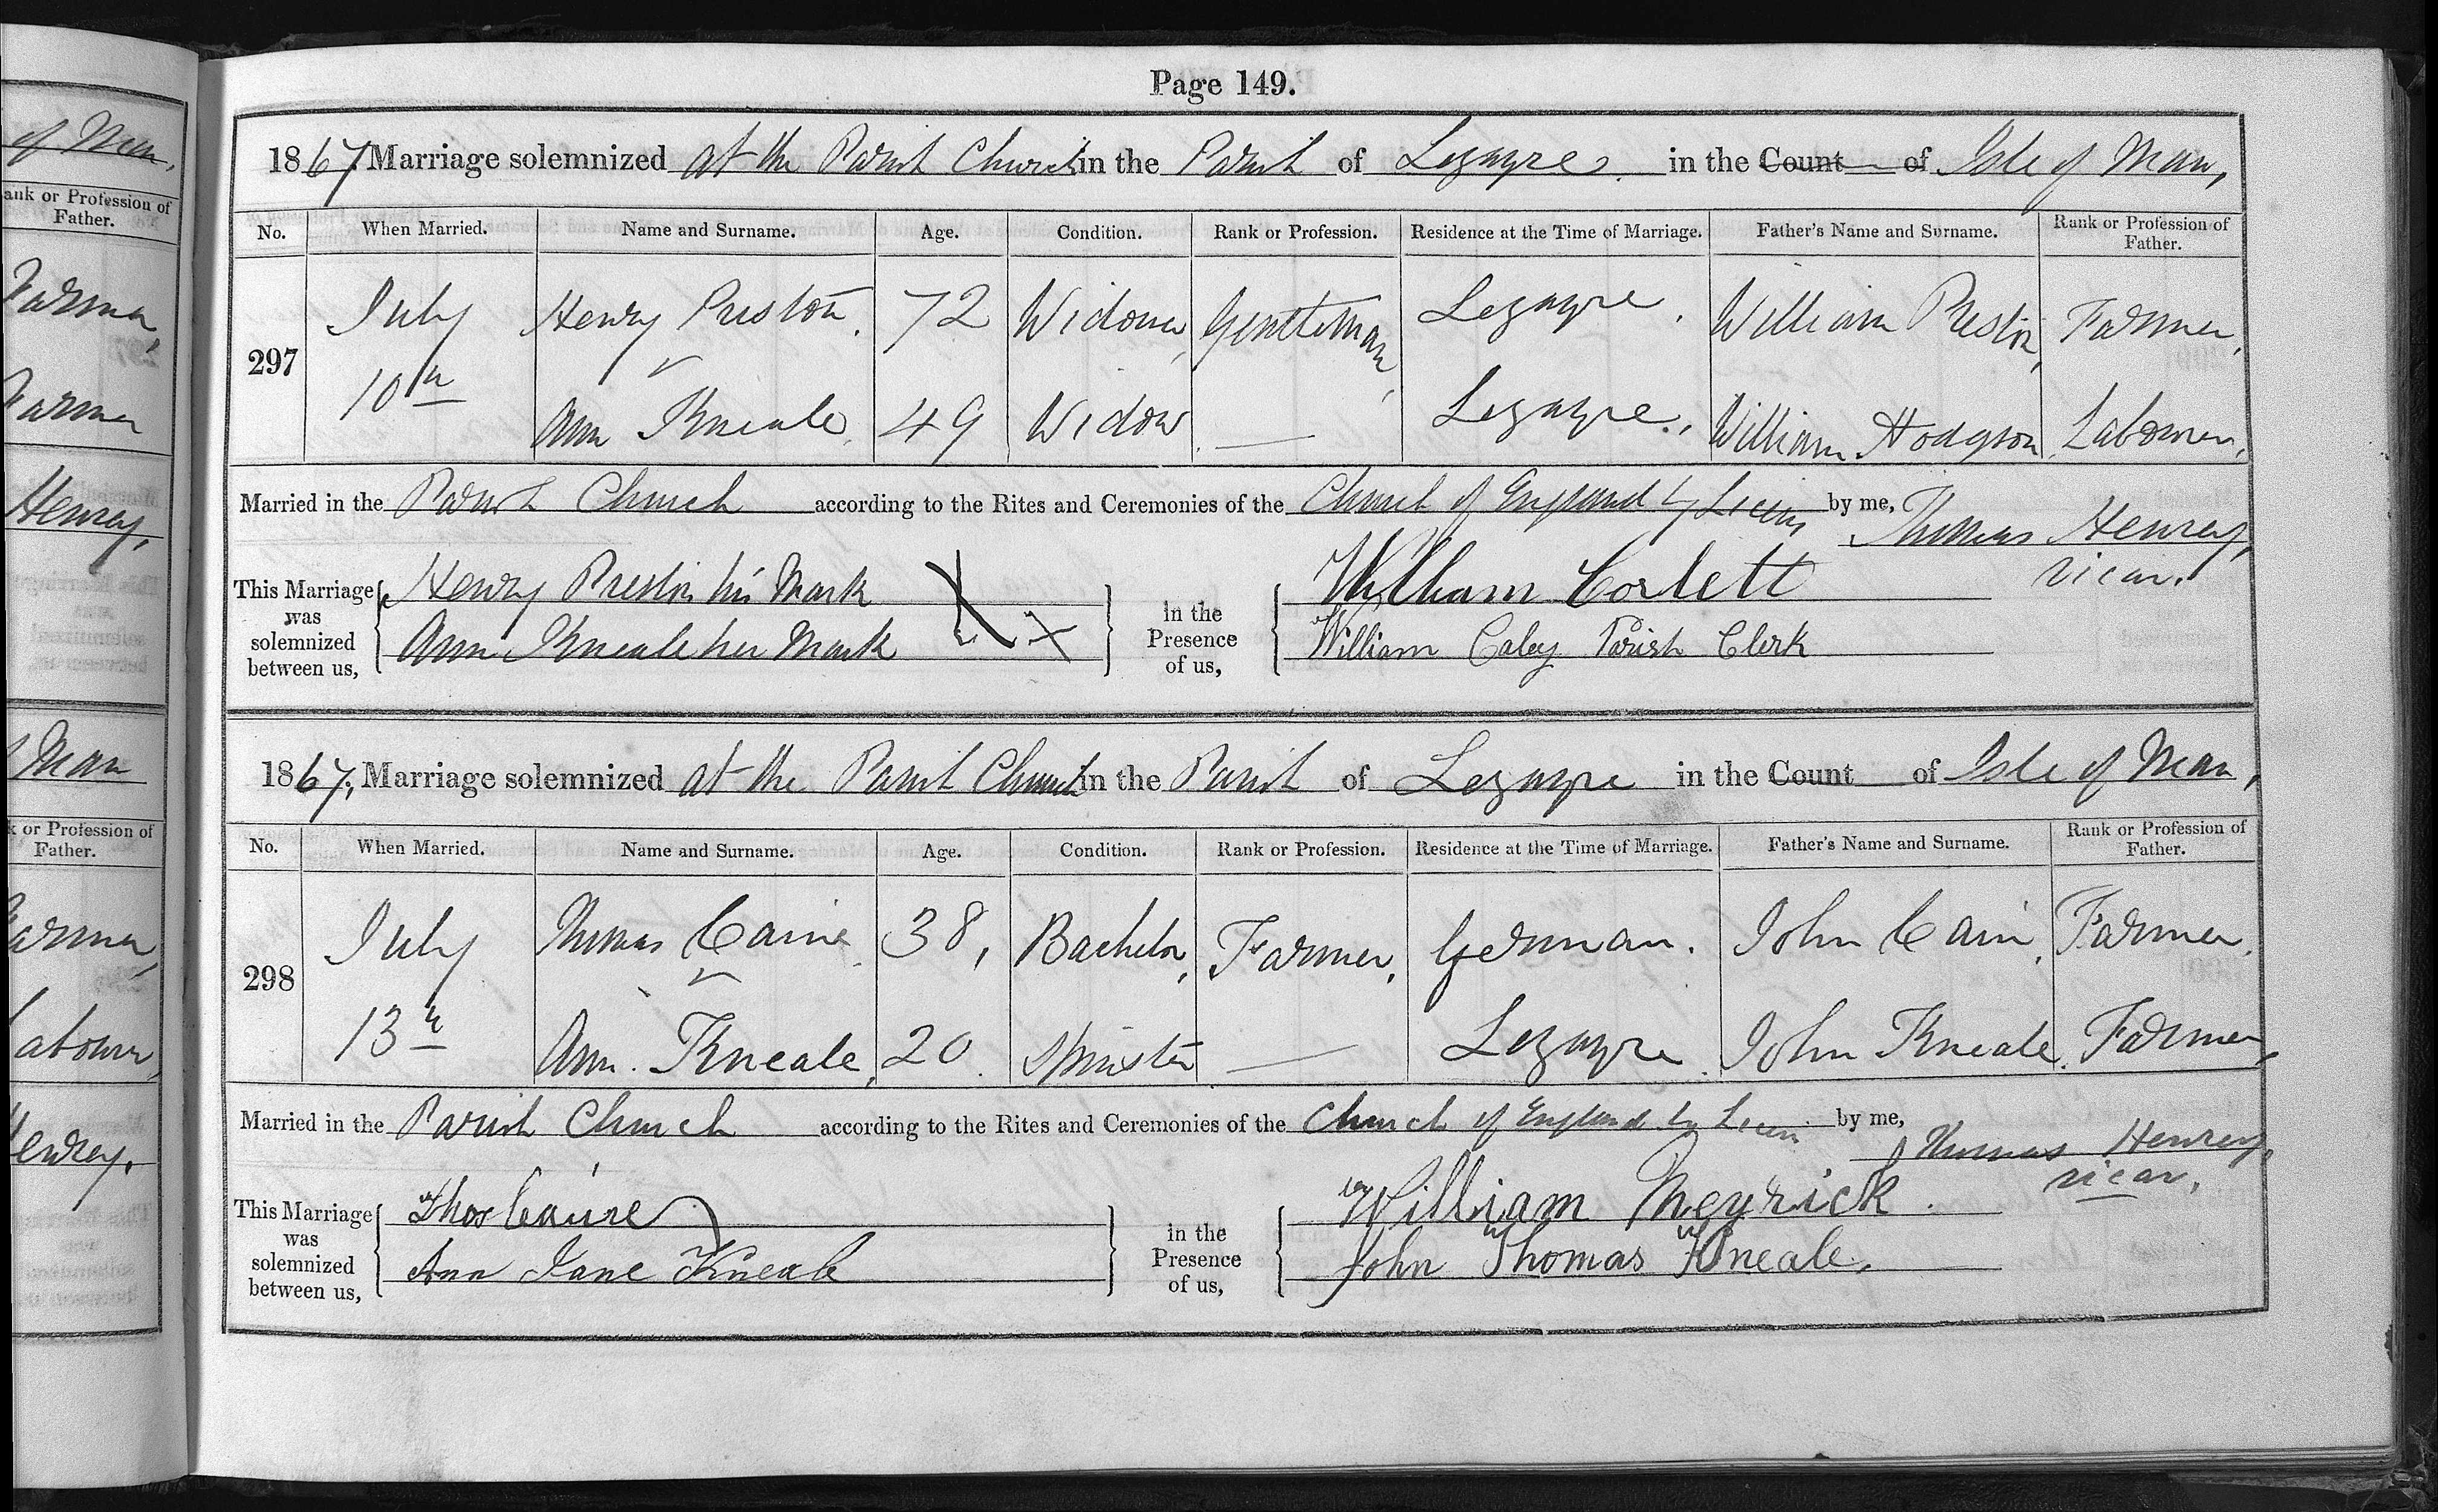 Page 149.
1867 Marriage solemnized at the Parish Church in the Parish of Lezayre in the Count of Isle of Man,
No. When Married. Name and Surname. Age. Condition. Rank or Profession. Residence at the Time of Marriage. Father's Name and Surname. Rank or Profession of Father.
297 July 10th Henry Preston. 72 Widower, Gentleman, Lezayre, William Preston, Farmer,
Ann Kneale, 49 Widow — Lezayre, William Hodgson, Labourer,
Married in the Parish Church according to the Rites and Ceremonies of the Church of England by Licens by me, Thomas Howard Henrey,
Vicar.
This Marriage was solemnized between us, Henry Preston his Mark X in the Presence of us, William Corlett
Ann Kneale her Mark X William Caley Parish Clerk
1867, Marriage solemnized at the Parish Church in the Parish of Lezayre in the Count of Isle of Man,
No. When Married. Name and Surname. Age. Condition. Rank or Profession. Residence at the Time of Marriage. Father's Name and Surname. Rank or Profession of Father.
298 July 13th Thomas Caine 38, Bachelor, Farmer, German. John Cain, Farmer.
Ann. Kneale, 20. Spinster — Lezayre. John Kneale. Farmer,
Married in the Parish Church according to the Rites and Ceremonies of the Church of England by Licens by me, Thomas Henrey,
Vicar,
This Marriage was solemnized between us, Thos Caine in the Presence of us, William Meyrick.
Ann Jane Kneale John Thomas Kneale.
of Man,
ank or Profession of
Father.
Farmer,
Farmer
Henrey,
Man
k or Profession of
Father.
Farmer,
Labourer,
Henrey,